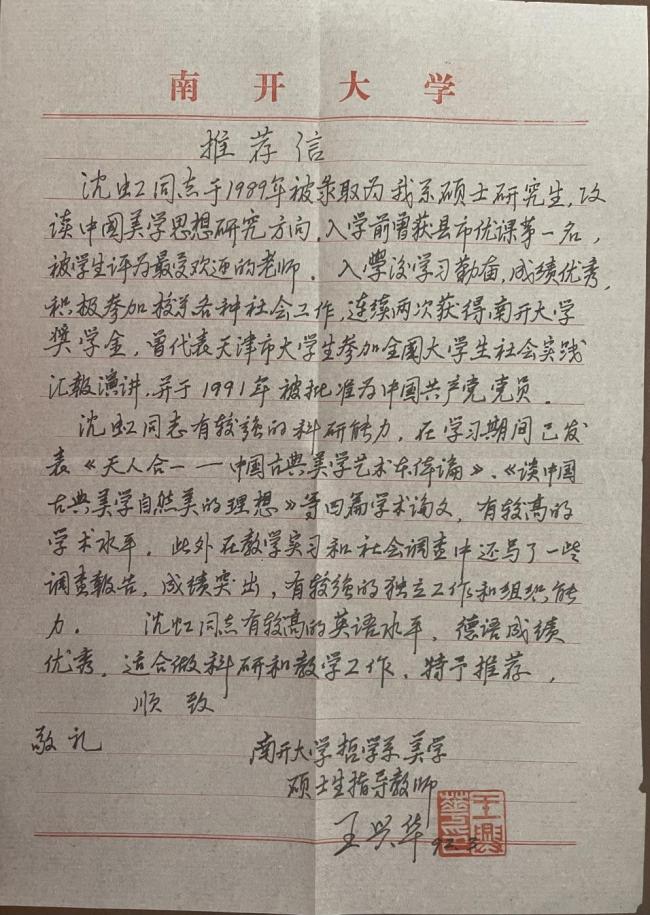 南开大学
推荐信
沈虹同志于1989年被录取为我系硕士研究生,攻
读中国美学思想研究方向。入学前曾获县市优课第一名,
被学生评为最受欢迎的老师。入學後学习勤奋,成绩优秀,
积极参加校系各种社会工作,连续两次获得南开大学
奖学金,曾代表天津市大学生参加全国大学生社会实践
汇報演讲,并于1991年被批准为中国共产党党员。
沈虹同志有较强的科研能力,在学习期间已发
表《天人合一——中国古典美学艺术本体论》、《谈中国
古典美学自然美的理想》等四篇学术论文,有较高的
学术水平。此外在教学实习和社会调查中还写了一些
调查報告,成绩突出,有较强的独立工作和组织能
力。沈虹同志有较高的英语水平,德语成绩
优秀。适合做科研和教学工作,特予推荐。
顺致
敬礼
南开大学哲学系美学
硕士生指导教师
王兴华 92.3
王興華印